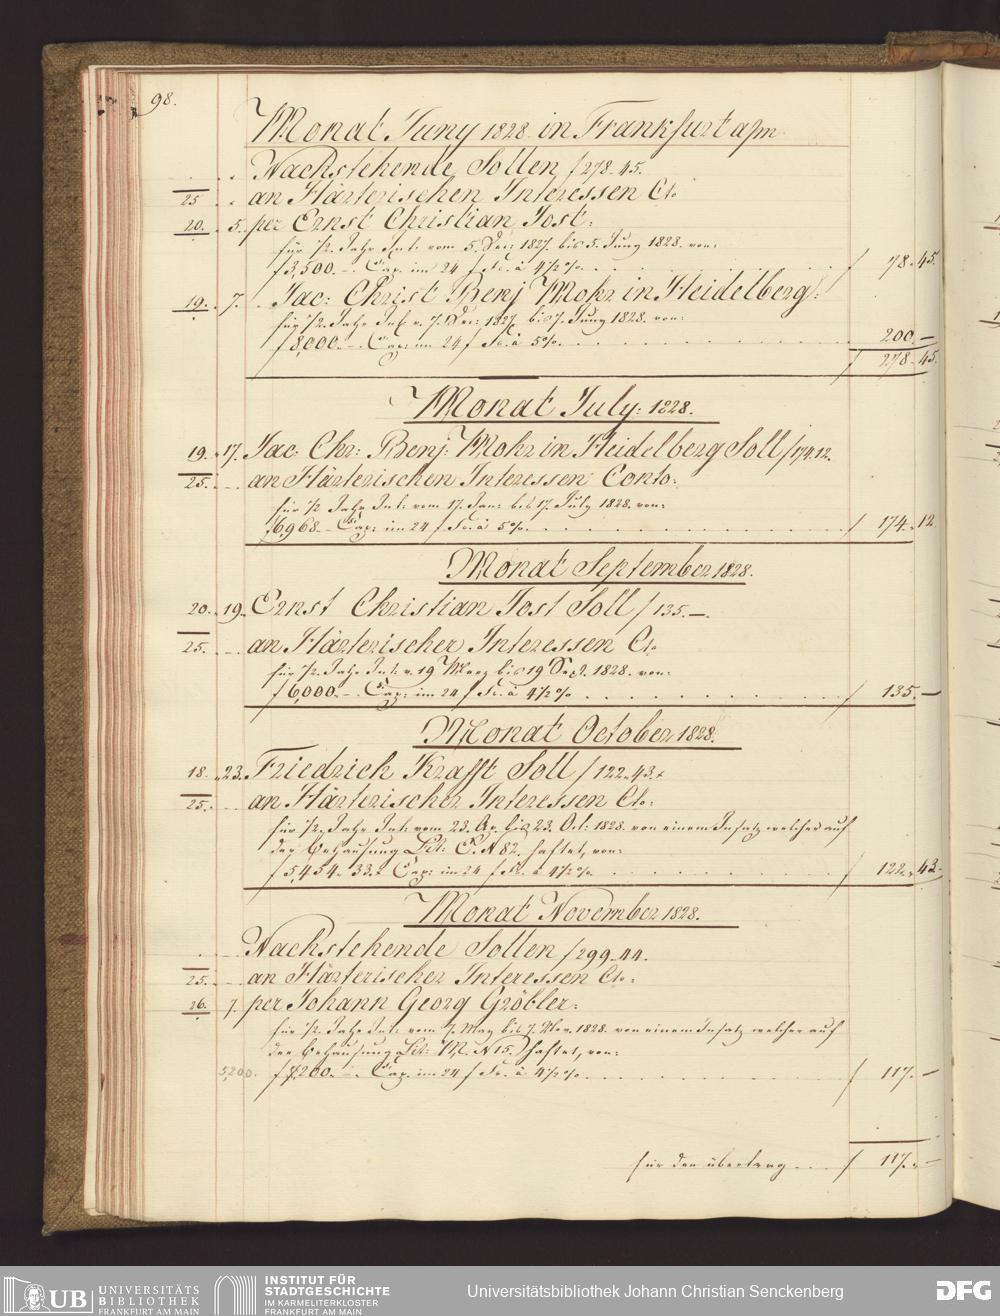 98.
Monat Juny 1828. in Frankfurt a/m
Nachstehende Sollen f 278. 45.
25 an Härterischen Interessen Cto
20. 5. per Ernst Christian Jost:
für 1/2 Jahr Int: vom 5. Dec: 1827. bis 5. Juny 1828. von:
f 3,500. – Cap. im 24 f Fs. à 4 1/2 %. f 78. 45.
19. 7. Jac: Christ Benj Mohr in Heidelberg:
für 1/2 Jahr Int. v. 7. Dec: 1827. bis 7. Juny 1828. von:
f 8,000. – Cap: im 24 f Fs. à 5%. 200. –
f 278. 45.
Monat July: 1828.
19. 17. Jac: Chr: Benj: Mohr in Heidelberg Soll f 174. 12.
25. an Härterischen Interessen Conto:
für 1/2 Jahr Int: vom 17. Jan: bis 17. July 1828. von:
f 6,968. – Cap: im 24 f Fs. à 5%. f 174. 12.
Monat September 1828.
20. 19. Ernst Christian Jost Soll f 135. –
25. an Härterischer Interessen Cto
für 1/2 Jahr Int: v. 19 Merz bis 19 Sept. 1828. von:
f 6,000. – Cap: im 24 f Fs. à 4 1/2 % f 135. –
Monat October 1828.
18. 23. Friedrich Krafft Soll f 122. 43.
25. an Härterischer Interessen Cto:
für 1/2 Jahr Int: vom 23. Ap. bis 23. Oct: 1828. von einem Insatz welcher auf
der Behausung Lit: C. N 82. haftet, von:
f 5,454. 33. Cap: im 24 f Fs. à 4 1/2 %. f 122. 43.
Monat November 1828.
Nachstehende Sollen f 299. 44.
25. an Härterischer Interessen Cto:
26. 7. per Johann Georg Gröbler:
für 1/2 Jahr Int: vom 7. May bis 7. Nov. 1828. von einem Insatz welcher auf
der Behausung Lit: M. N 15. haftet, von:
5200. f 5,200. – Cap. im 24 f Fs. à 4 1/2 % f 117. –
für den übertrag f 117. –
UB UNIVERSITÄTS
BIBLIOTHEK
FRANKFURT AM MAIN
INSTITUT FÜR
STADTGESCHICHTE
IM KARMELITERKLOSTER
FRANKFURT AM MAIN
Universitätsbibliothek Johann Christian Senckenberg
DFG